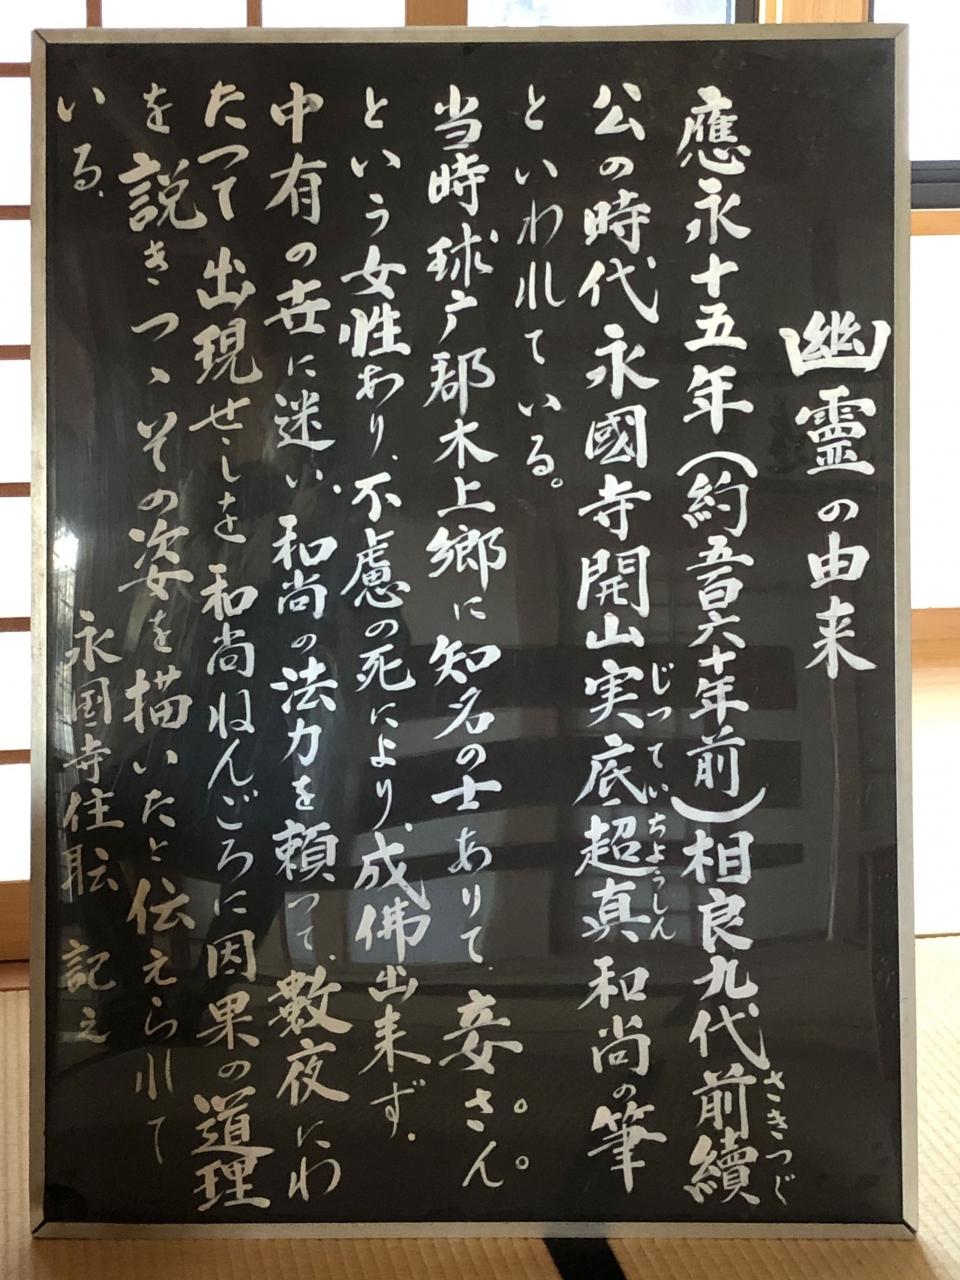 幽霊の由来
應永十五年（約五百六十年前）相良九代前續
さきつぐ
公の時代永國寺開山実底超真和尚の筆
じっていちょうしん
といわれている。
当時球广郡木上郷に知名の士ありて、妾さん
という女性あり、不慮の死により、成佛出来ず、
中有の世に迷い、和尚の法力を頼って、数夜にわ
たって出現せしを和尚ねんごろに因果の道理
を説きつゝその姿を描いたと伝えられて
いる。
永国寺住職 記之